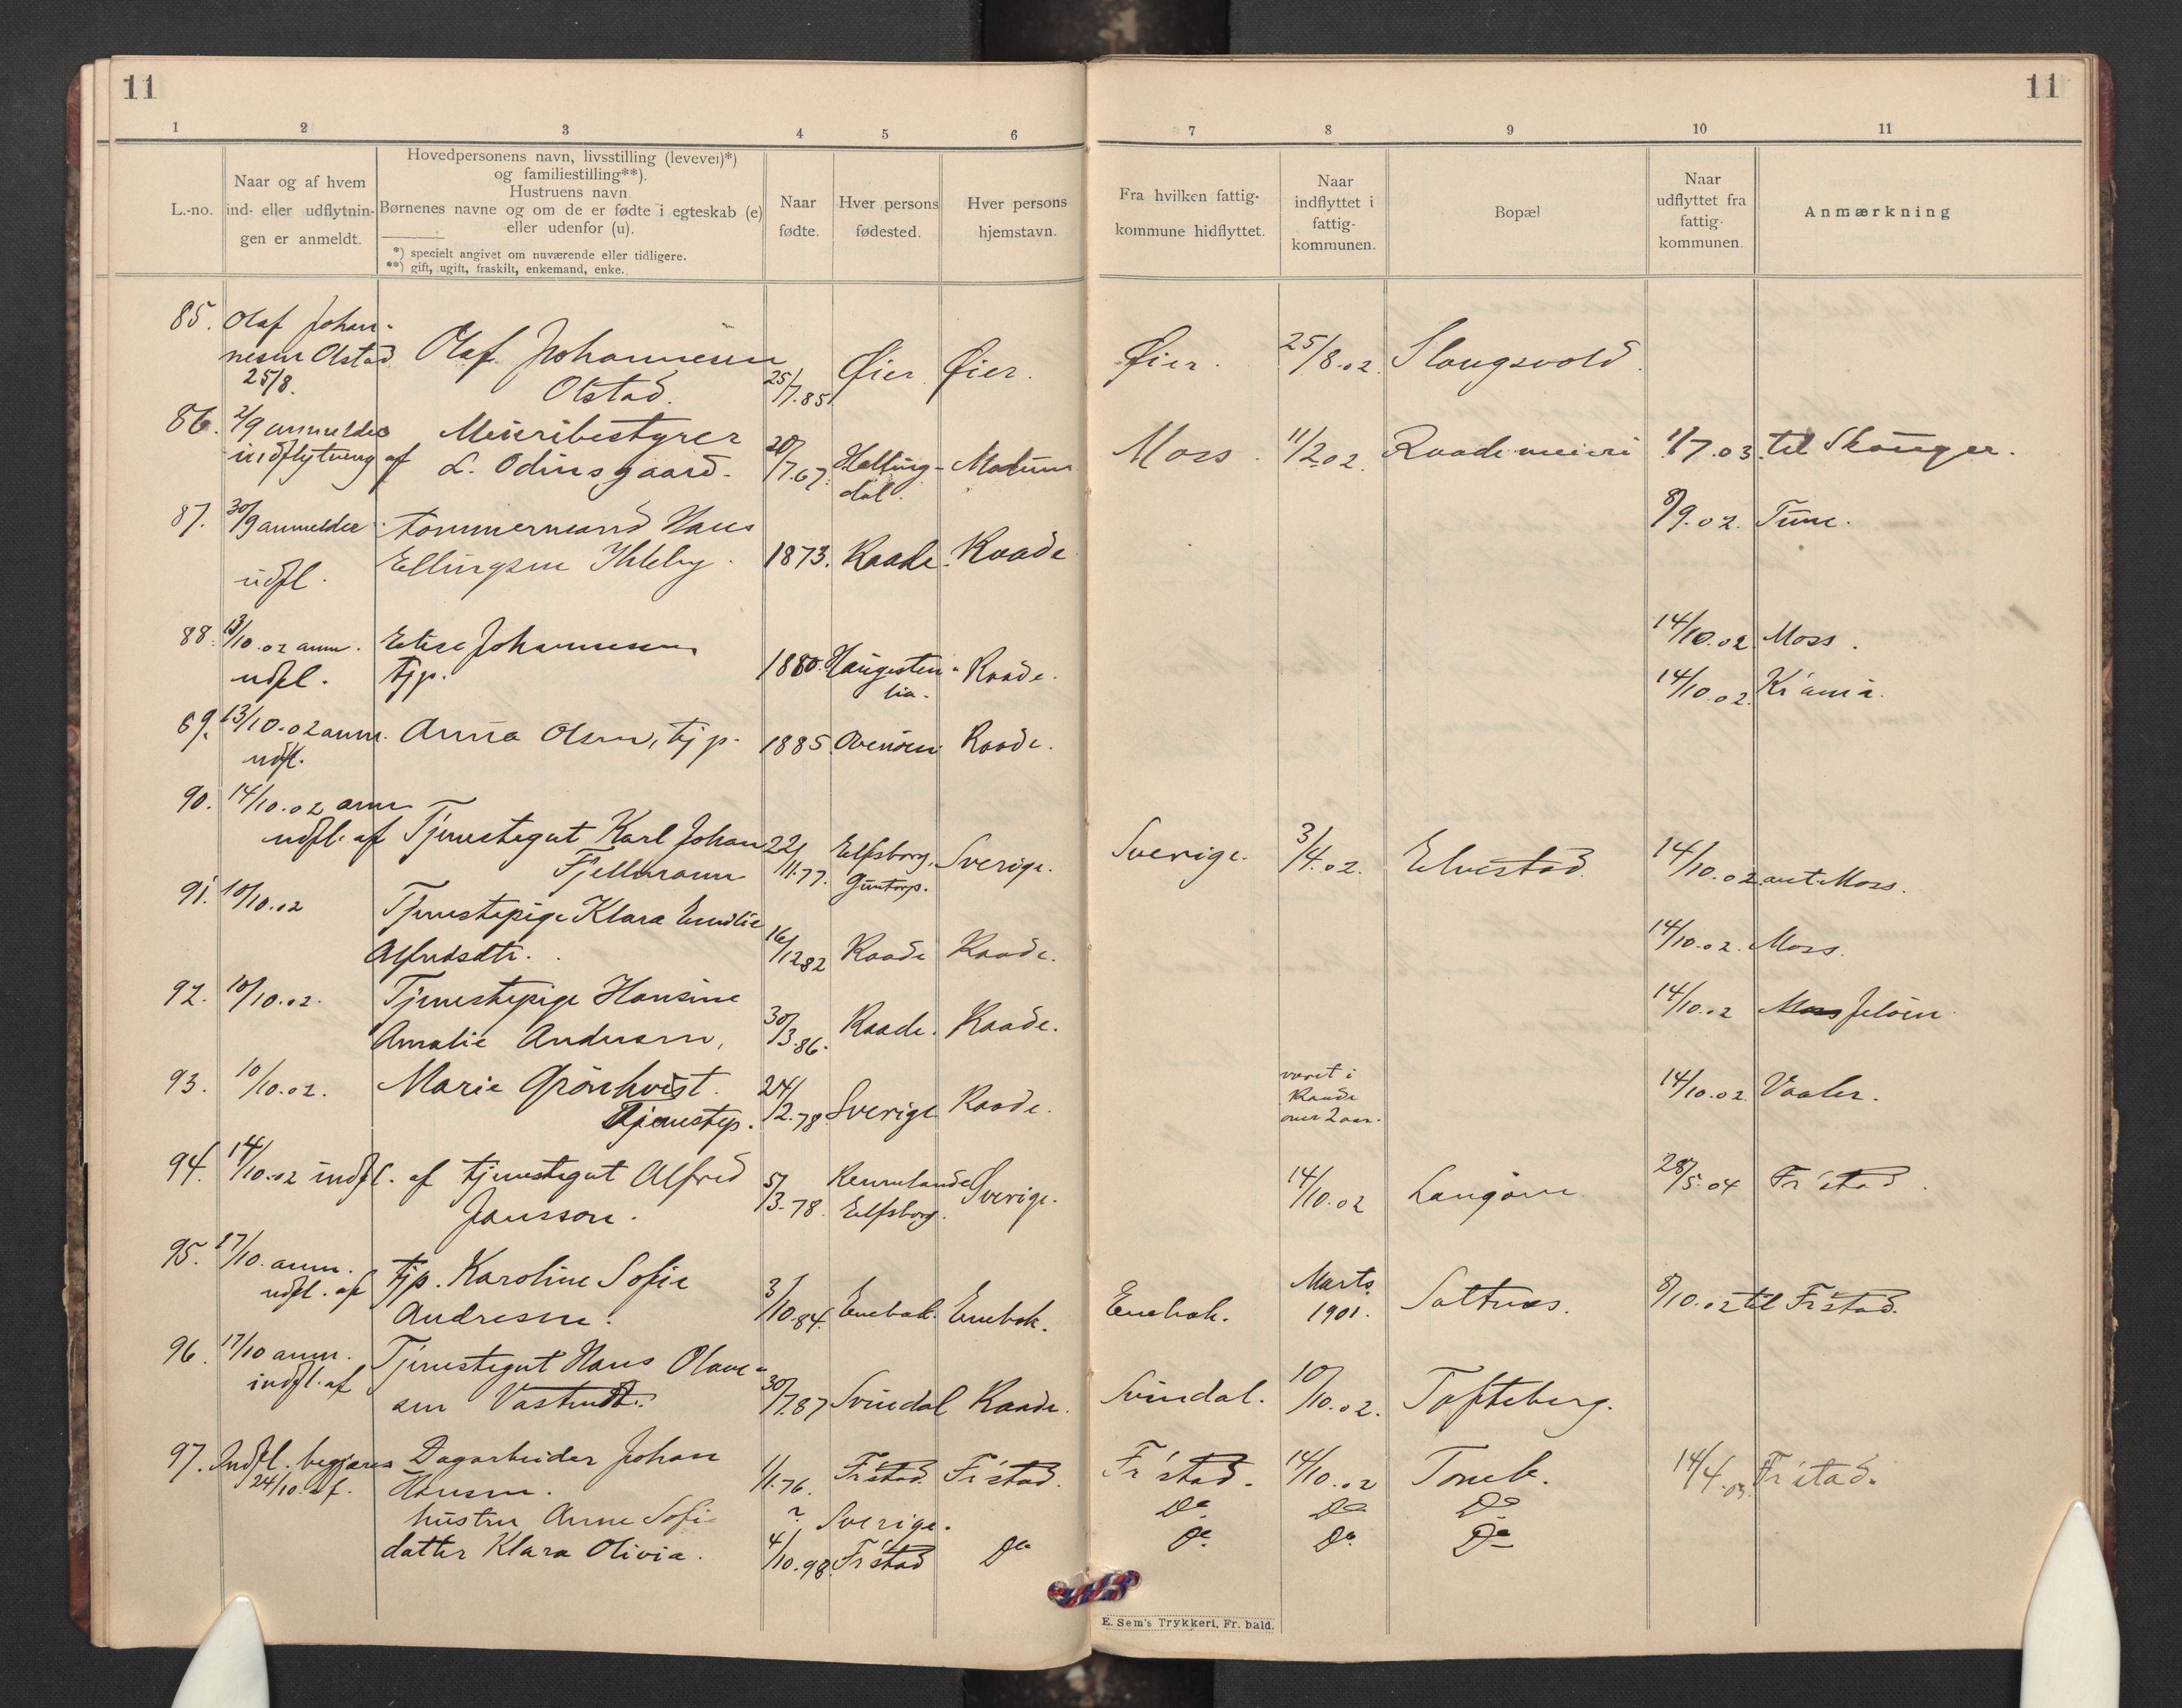 11
11
1 2 3 4 5 6 7 8 9 10 11
L.-no.
Naar og af hvem
ind- eller udflytnin-
gen er anmeldt.
Hovedpersonens navn, livsstilling (levevei)*)
og familiestilling**).
Hustruens navn.
Børnenes navne og om de er fødte i egteskab (e)
eller udenfor (u).
*) specielt angivet om nuværende eller tidligere.
**) gift, ugift, fraskilt, enkemand, enke.
Naar
fødte.
Hver persons
fødested.
Hver persons
hjemstavn.
Fra hvilken fattig-
kommune hidflyttet.
Naar
indflyttet i
fattig-
kommunen.
Bopæl
Naar
udflyttet fra
fattig-
kommunen.
Anmærkning
85. Olaf Johan-
nesen Olstad Olaf Johannesen Øier Øier. Øier. 25/8.02. Slangsvold.
25/8. Olstad. 25/7.85
86. 2/9 anmeldes Meieribestyrer
indflytning af L. Odinsgaard. 20/7.67. Halling- Modum Moss. 11/2 02. Raade meieri 1/7.03. til Skauger.
dal.
87. 30/9 anmeldes Tømmermand Hans 8/9.02. Tune.
udfl. Ellingsen Ihleby. 1873. Raade. Raade
88. 13/10.02 anm. Elise Johannesen 14/10.02. Moss.
udfl. tjp. 1880. Haugesten- Raade.
lia.
89. 13/10.02 anm. Anna Olsen, tjp. 1885. Ovenøen Raade. 14/10.02. Kr'ania.
udfl.
90. 14/10.02 anm
udfl. af Tjenestegut Karl Johan 22/11.77. Elfsborg, Sverige. Sverige. 3/4.02. Elvestad. 14/10.02 ant. Moss.
Fjellmann Guntorp.
91. 10/10.02 Tjenestepige Klara Emilie
Alfredsdtr. 16/12 82 Raade Raade. 14/10.02. Moss.
92. 10/10.02. Tjenestepige Hansine 14/10.02 Moss Jeløen
Amalie Andersen, 30/3.86. Raade. Raade.
93. 10/10.02. Marie Grönkvist. 24/2.78. Sverige Raade. været i 14/10.02. Vaaler.
Tjenestep. Raade
over 2 aar.
94. 14/10.02 indfl. af tjenestegut Alfred 5/3.78. Sverige. 14/10.02 Langøen 28/5.04 Fr'stad.
Jansson. Elfsborg.
95. 17/10. anm. tjp. Karoline Sofie Marts
udfl. af Andresen. 3/10.84. Enebak. Enebak. Enebak. 1901. Saltnæs. 8/10.02 til Fr'stad.
96. 17/10 anm. Tjenestegut Hans Olave-
indfl. af sen 30/7.87 Svindal Raade. Svindal. 10/10.02. Tofteberg.
97. Indfl. begjæres Dagarbeider Johan
24/10. af. Hansen. 1/1.76. Fr'stad. Fr'stad. Fr'stad. 14/10.02 Tomb. 14/4.03. Fr'stad.
hustru Anne Sofie ? Sverige. Do Do Do
datter Klara Olivia. 4/10.98. Fr'stad Do Do Do Do
E. Sem's Trykkeri, Fr. hald.